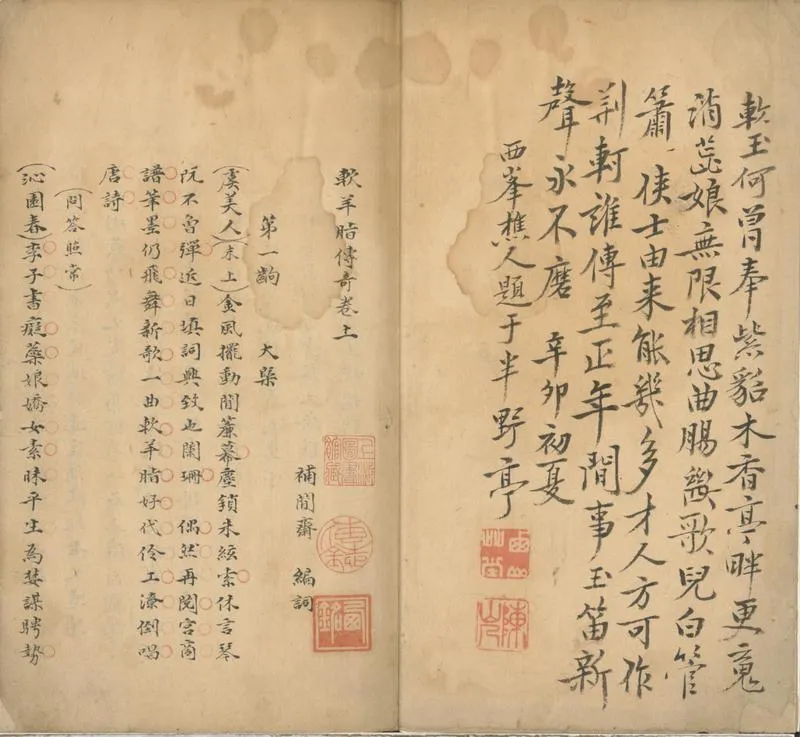 軟玉何曾奉紫貂木香亭畔更寬
消蕋娘無限相思曲腸斷歌兒白管
簫 俠士由来能幾多才人方可作
荆軻誰傳至正年間事玉笛新
聲永不磨 辛卯初夏
西峯樵人題于半野亭
軟羊脂傳奇卷上
補閒齋 編詞
第一齣 大槩
(虞美人)(末上)金風擺動閒簾幕塵鎖朱絃索休言琴
阮不魯彈近日填詞興致也闌珊 偶然再閱宮商
譜筆墨仍飛舞新歌一曲軟羊脂好代伶工潦倒唱
唐詩
(問答照常)
(沁園春)李子書癡蘂娘嬌女素昧平生為婪謀聘勢